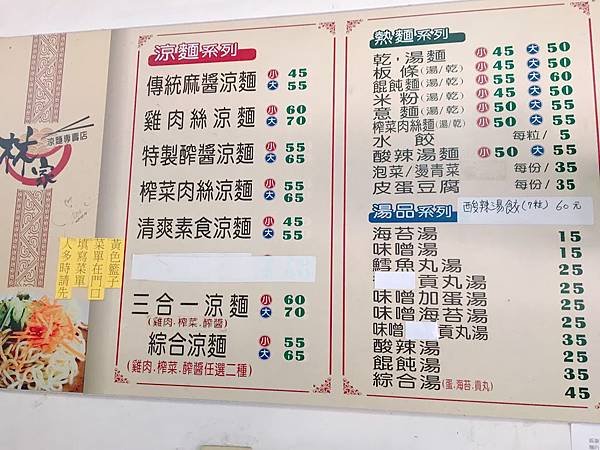 林家
涼麵專賣店
黃色籃子
菜單在門口
填寫菜單
人多時請先
涼麵系列
傳統麻醬涼麵 小 45 大 55
雞肉絲涼麵 小 60 大 70
特製酢醬涼麵 小 55 大 65
榨菜肉絲涼麵 小 55 大 65
清爽素食涼麵 小 45 大 55
三合一涼麵 小 60 大 70
(雞肉.榨菜.酢醬)
綜合涼麵 小 55 大 65
(雞肉.榨菜.酢醬任選二種)
熱麵系列
乾,湯麵 小 45 大 50
板條(湯/乾) 小 45 大 50
餛飩麵(湯/乾) 小 55 大 60
米粉(湯/乾) 小 45 大 50
意麵(湯/乾) 小 50 大 55
榨菜肉絲麵(湯/乾) 小 50 大 55
水餃 每粒/ 5
酸辣湯麵 小 50 大 55
泡菜/燙青菜 每份/ 35
皮蛋豆腐 每份/ 35
湯品系列 酸辣湯餃(7粒) 60元
海苔湯 15
味噌湯 15
鱈魚丸湯 25
貢丸湯 25
味噌加蛋湯 25
味噌海苔湯 25
味噌 貢丸湯 35
酸辣湯 35
餛飩湯 35
綜合湯(蛋.海苔.貢丸) 45